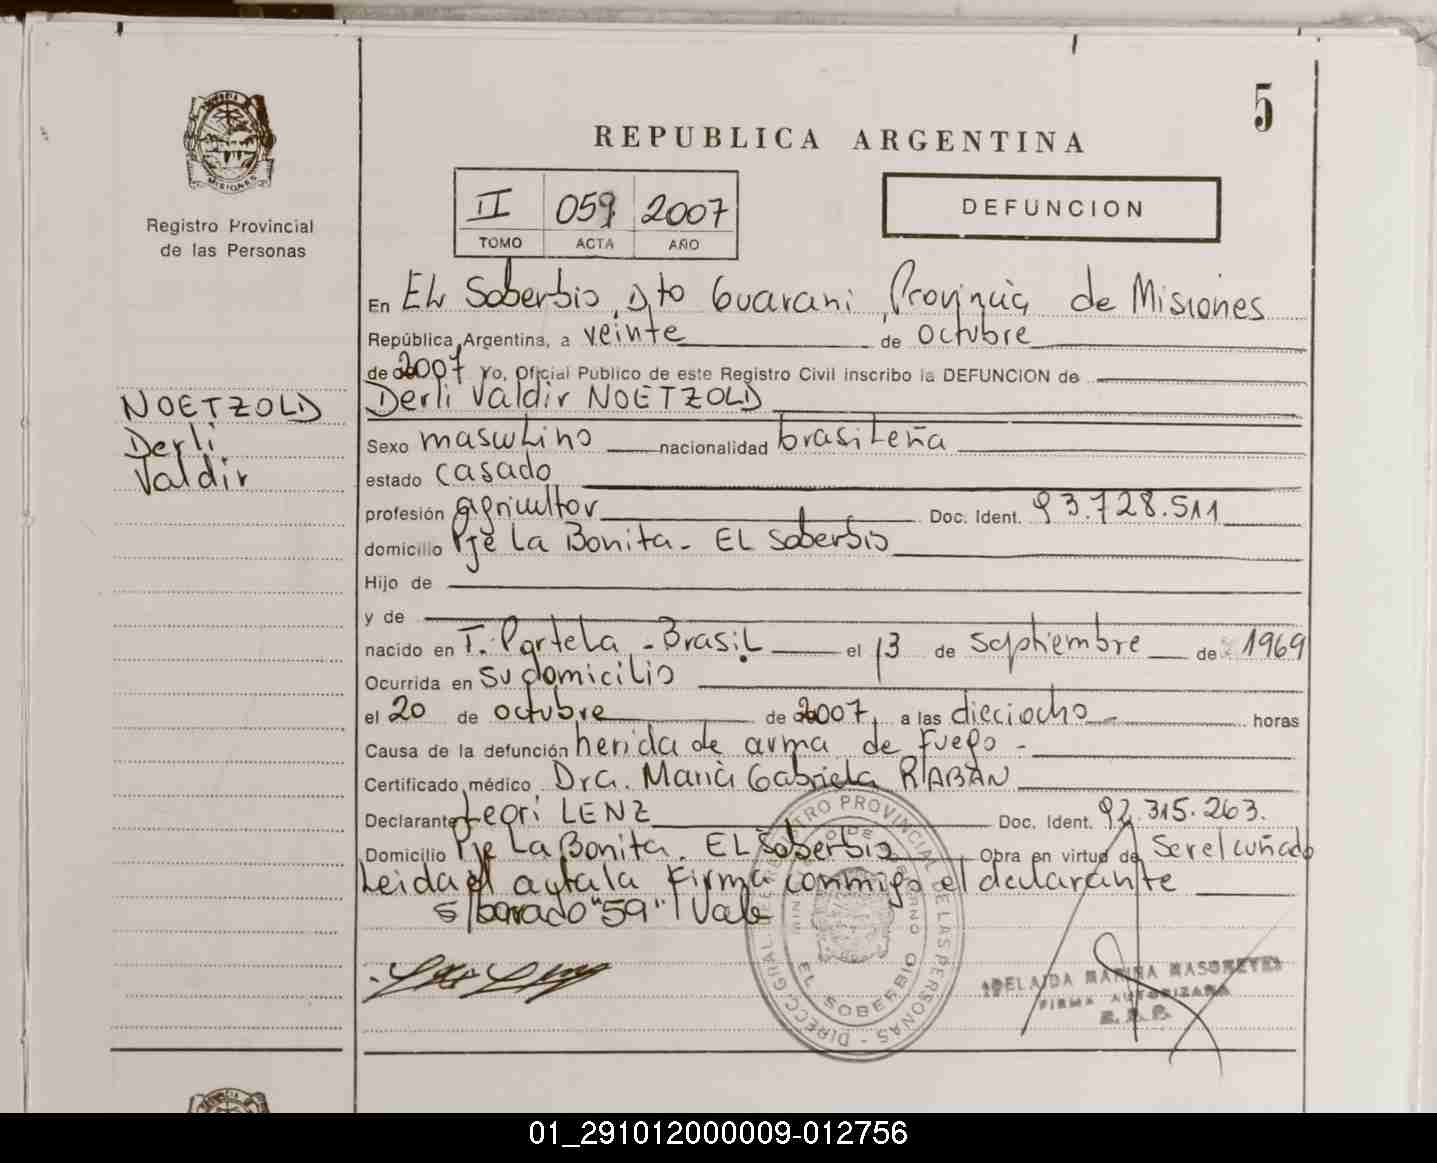 5
REPUBLICA ARGENTINA
MISIONES
Registro Provincial
de las Personas
II 059 2007
TOMO ACTA AÑO
DEFUNCION
En EL Soberbio, Dto Guarani, Provincia de Misiones
República Argentina, a veinte de octubre
de 2007 Yo, Oficial Público de este Registro Civil inscribo la DEFUNCION de
NOETZOLD
Derli
Valdir
Derli Valdir NOETZOLD
Sexo masculino nacionalidad brasileña
estado casado
profesión agricultor Doc. Ident. 93.728.511
domicilio Pje La Bonita - EL Soberbio
Hijo de
y de
nacido en T. Portela - Brasil el 13 de septiembre de 1969
Ocurrida en su domicilio
el 20 de octubre de 2007, a las dieciocho horas
Causa de la defunción herida de arma de fuego -
Certificado médico Dra. Maria Gabriela RABAN
Declarante Leori LENZ Doc. Ident. 92.315.263.
Domicilio Pje La Bonita. EL Soberbio Obra en virtud de Ser el cuñado
Leida el acta la firma conmigo el declarante
s/borado "59" Vale
DIRECC. GRAL. DE REGISTRO PROVINCIAL DE LAS PERSONAS
EL SOBERBIO
ADELAIDA MARINA
FIRMA AUTORIZADA
01_291012000009-012756